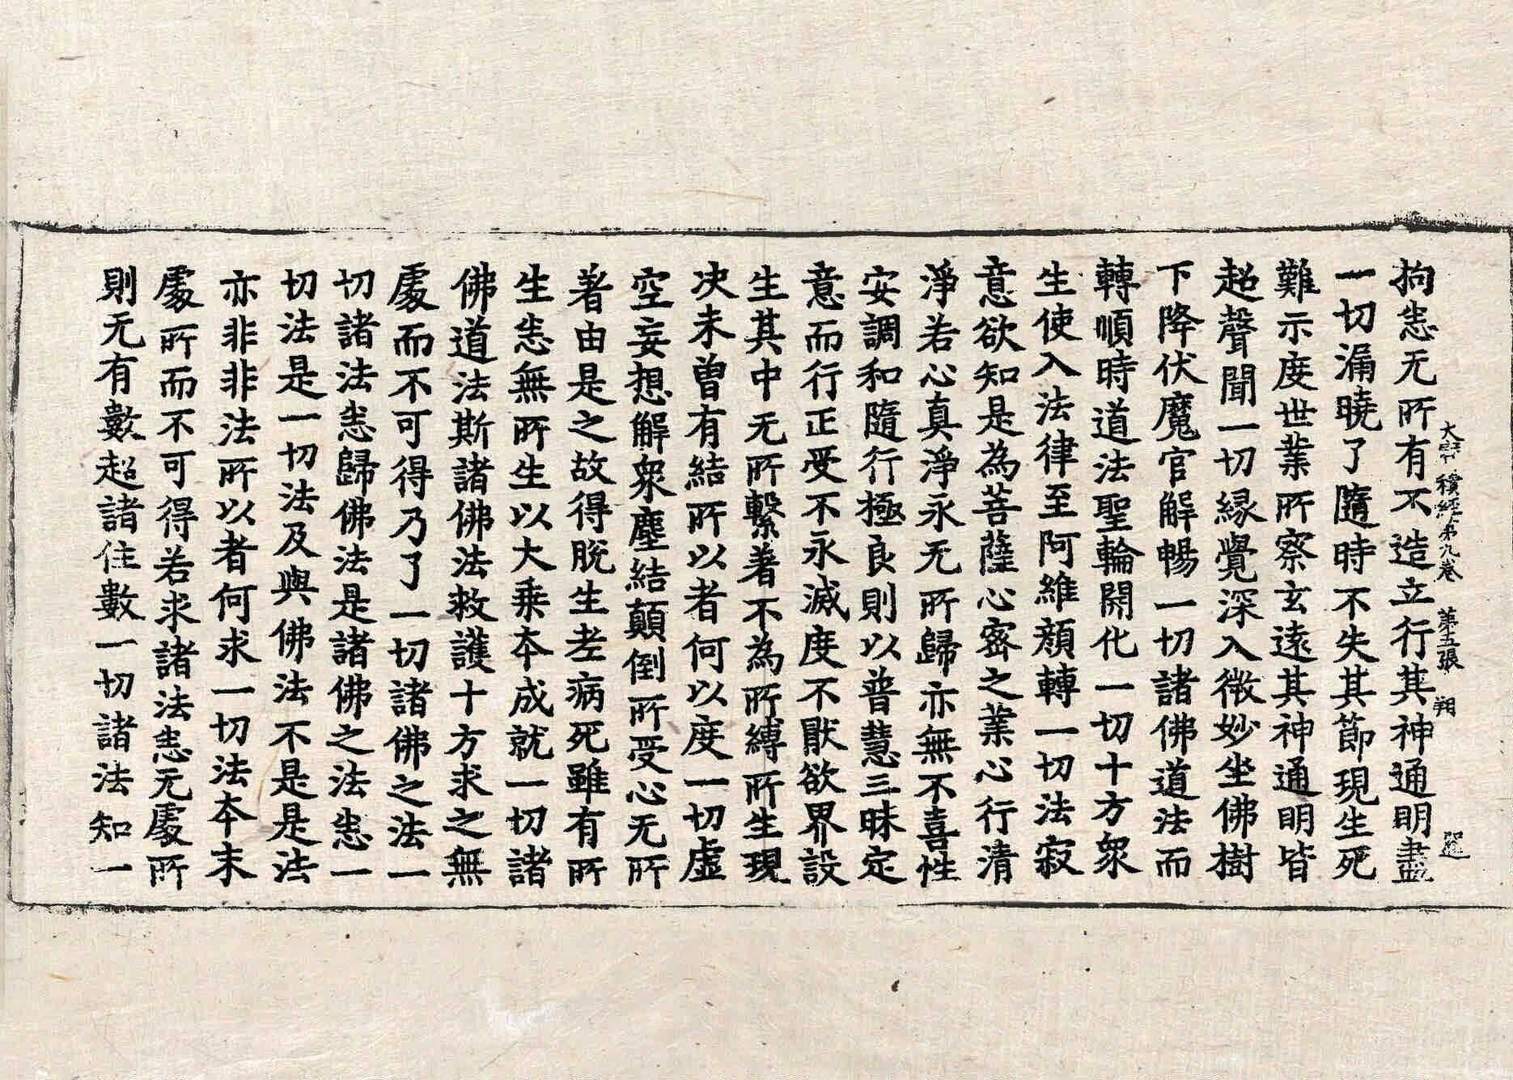 大寶積經第九卷　第五張　翔
拘恚无所有不造立行其神通明盡
一切漏曉了隨時不失其節現生死
難示度世業所察玄遠其神通明皆
超聲聞一切緣覺深入微妙坐佛樹
下降伏魔官解暢一切諸佛道法而
轉順時道法聖輪開化一切十方衆
生使入法律至阿維顏轉一切法寂
意欲知是為菩薩心密之業心行清
淨若心真淨永无所歸亦無不喜性
安調和隨行極良則以普慧三昧定
意而行正受不永滅度不猒欲界設
生其中无所繫著不為所縛所生現
决未曾有結所以者何以度一切虛
空妄想解衆塵結顛倒所受心无所
著由是之故得脫生老病死雖有所
生恚無所生以大乘本成就一切諸
佛道法斯諸佛法救護十方求之無
處而不可得乃了一切諸佛之法一
切諸法恚歸佛法是諸佛之法恚一
切法是一切法及與佛法不是是法
亦非非法所以者何求一切法本末
處所而不可得若求諸法恚无處所
則无有數超諸住數一切諸法知一